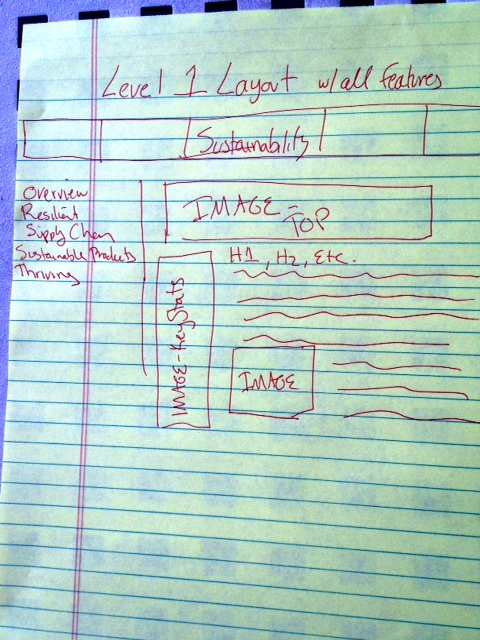 Level 1 Layout w/all features
Sustainability
Overview
Resilient
Supply Chain
Sustainable Products
Thriving
IMAGE -
TOP
H1, H2, Etc.
IMAGE-KeyStats
IMAGE